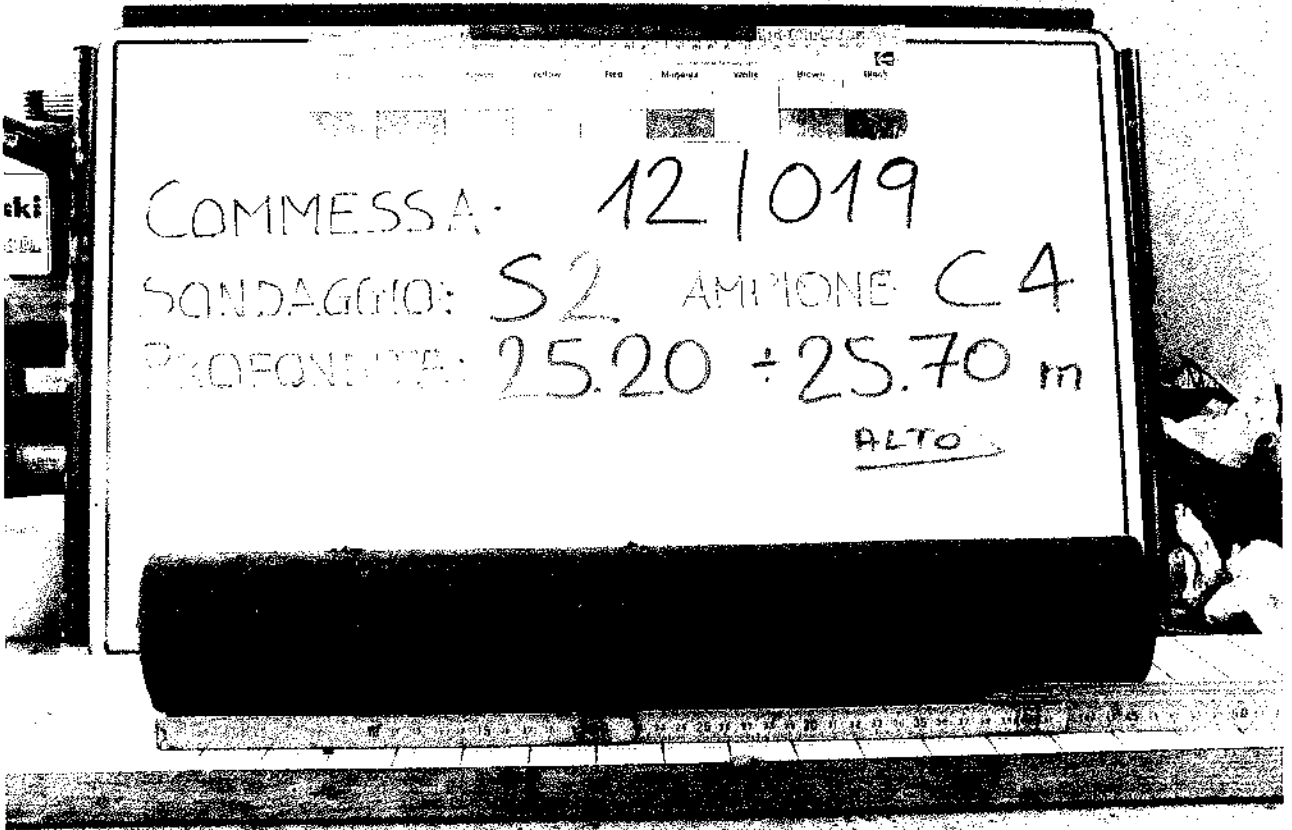 Yellow Red Magenta White Brown Black
ski
COMMESSA: 12/019
SONDAGGIO: S2 CAMPIONE C4
PROFONDITA: 25.20 ÷ 25.70 m
ALTO